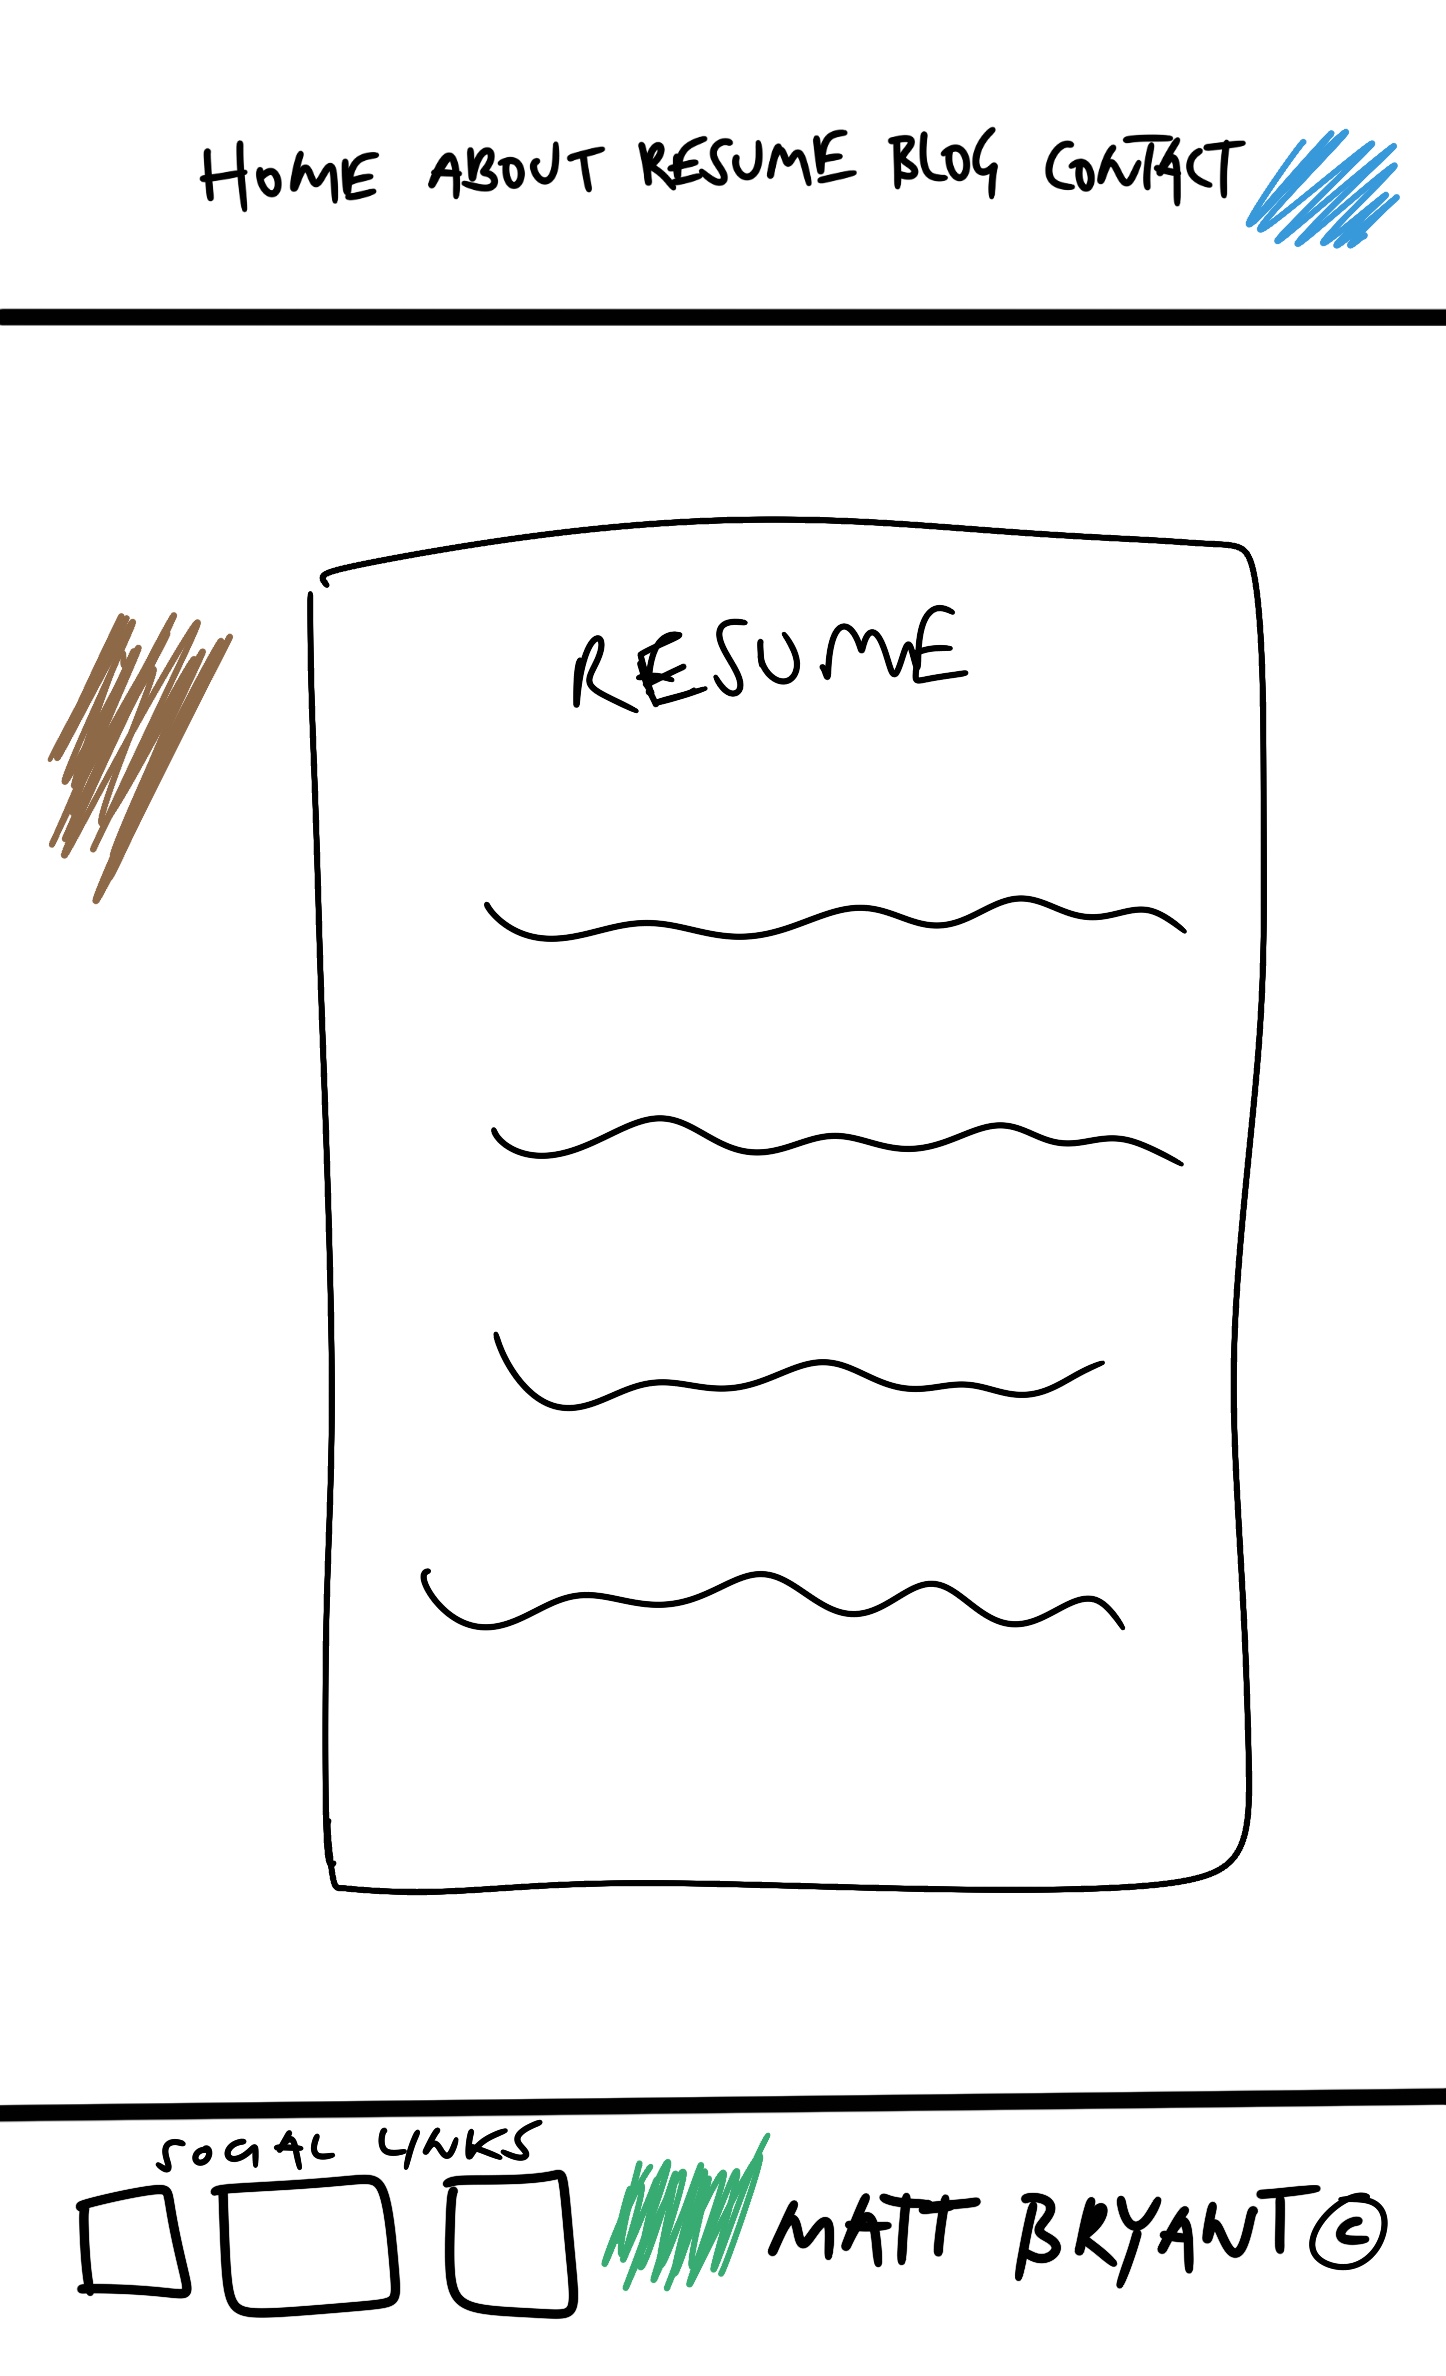 HOME ABOUT RESUME BLOG CONTACT
RESUME
SOCIAL LINKS
MATT BRYANT ©